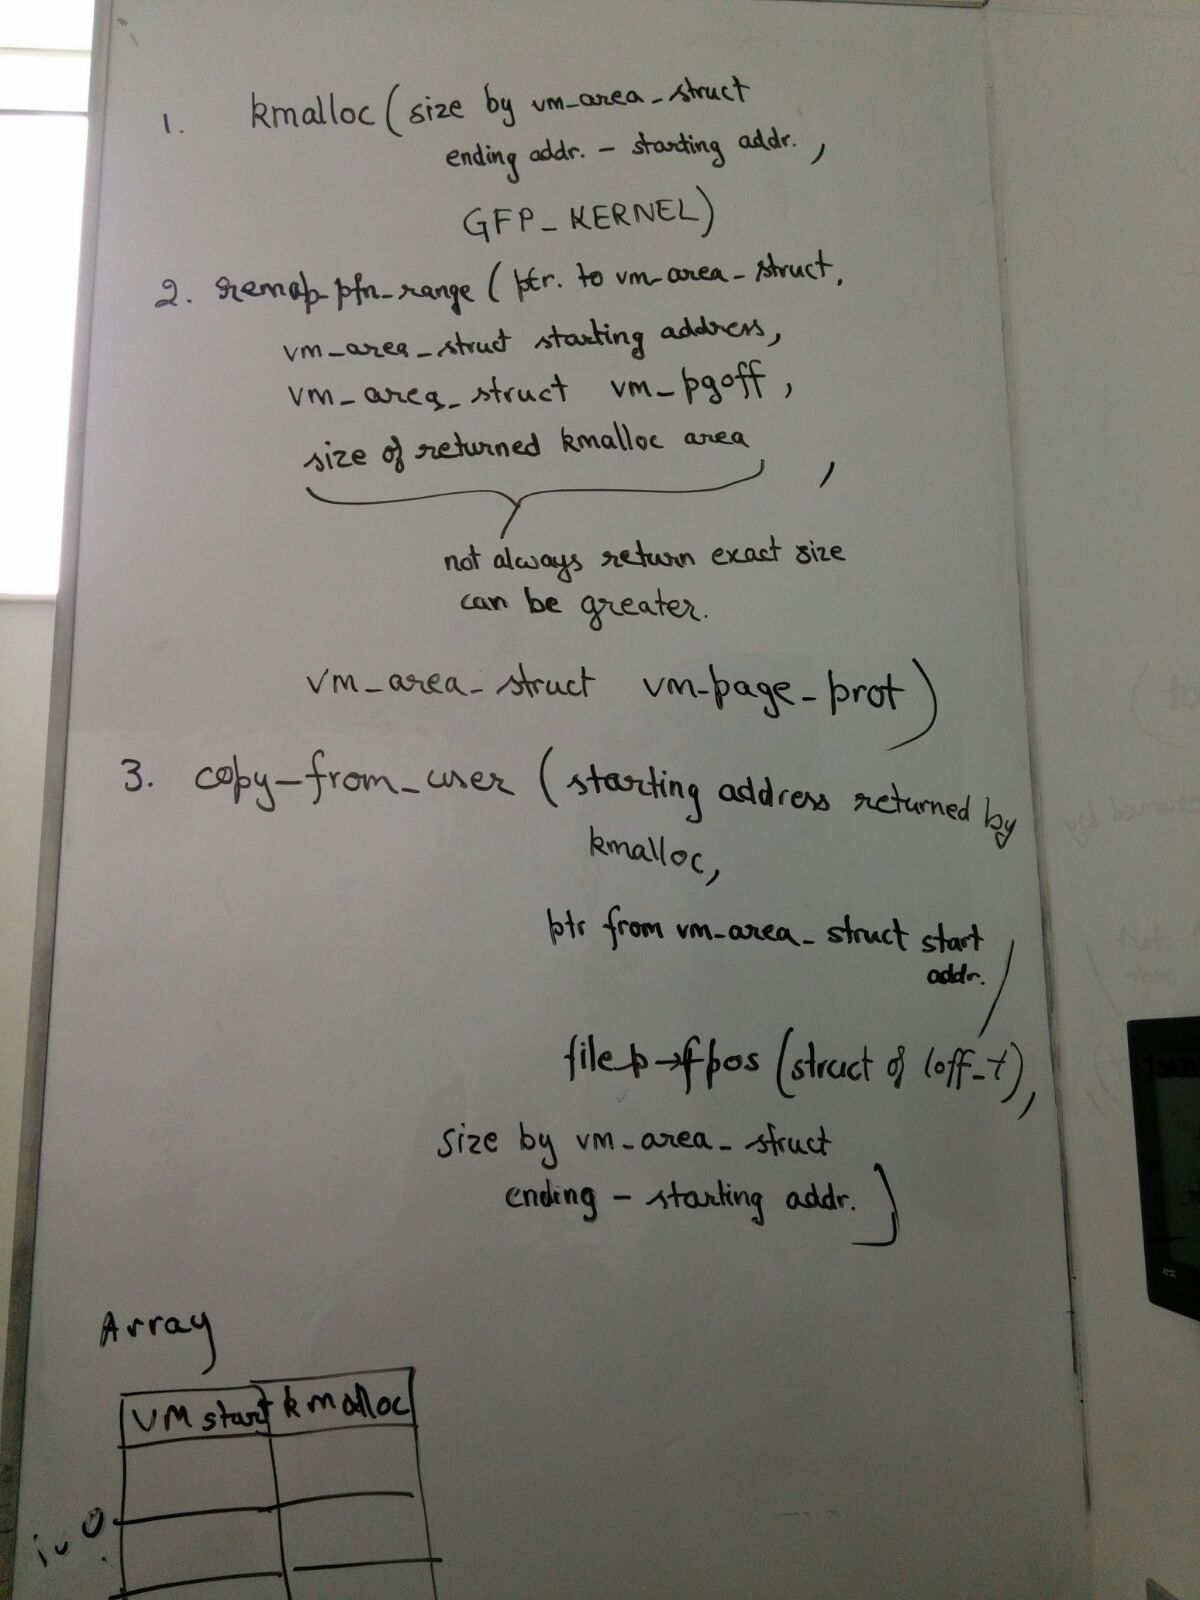 1. kmalloc ( size by vm_area_struct
ending addr. - starting addr. ,
GFP_KERNEL)
2. remap_pfn_range ( ptr. to vm_area_struct,
vm_area_struct starting address,
vm_area_struct vm_pgoff ,
size of returned kmalloc area ,
not always return exact size
can be greater.
vm_area_struct vm_page_prot )
3. copy_from_user ( starting address returned by
kmalloc,
ptr from vm_area_struct start
addr. ,
filep→fpos (struct of loff_t) ,
size by vm_area_struct
ending - starting addr. )
Array
VM start kmalloc
0